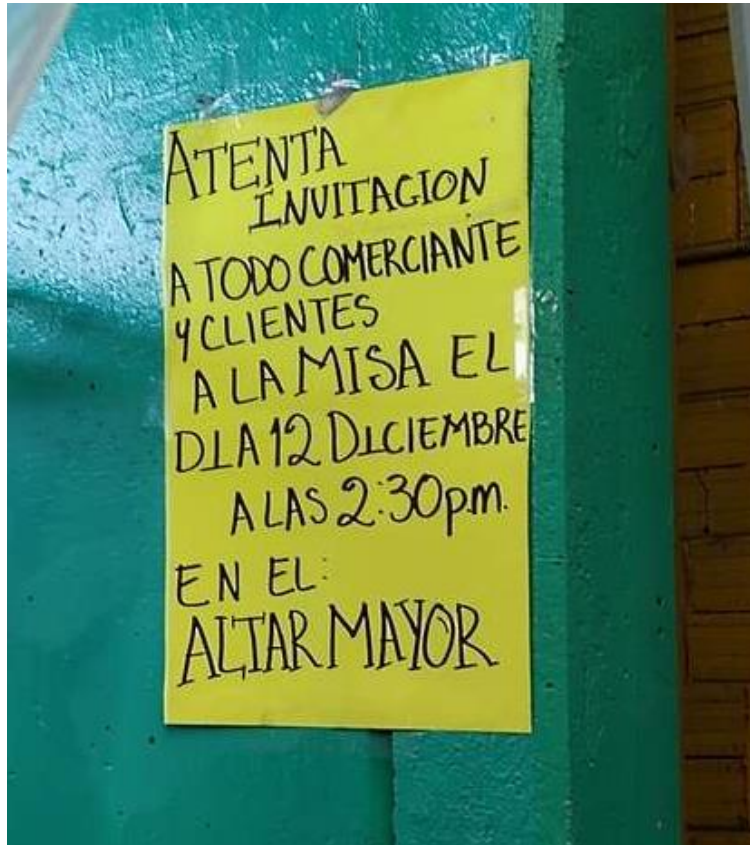 ATENTA
INVITACION
A TODO COMERCIANTE
Y CLIENTES
A LA MISA EL
DIA 12 DICIEMBRE
A LAS 2:30 p.m.
EN EL:
ALTAR MAYOR